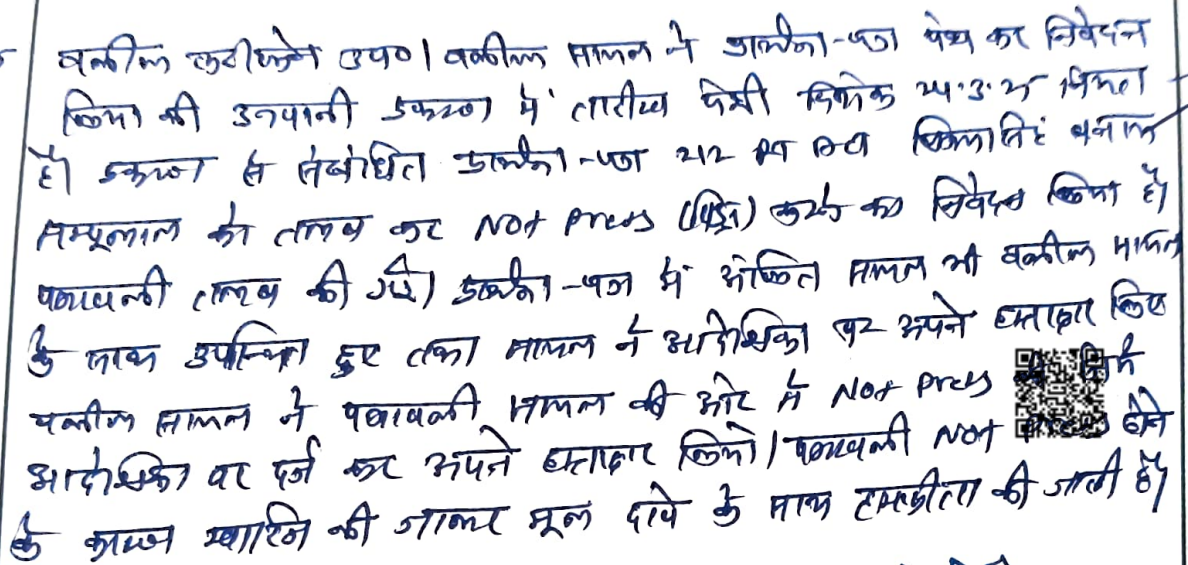 वकील फरीकेन उप०। वकील सायल ने प्रार्थना-पत्र पेश कर निवेदन
किया की उनवानी प्रकरण में तारीख पेशी दिनांक 24.3.25 नियत
है। प्रकरण से संबंधित प्रार्थना-पत्र 212 बनाम
को तलब कर Not Press करने का निवेदन किया है।
पत्रावली तलब की गई। प्रार्थना-पत्र में अंकित सायल भी वकील सायल
के साथ उपस्थित हुए तथा सायल ने आदेशिका पर अपने हस्ताक्षर किए
वकील सायल ने पत्रावली सायल की ओर से Not Press
आदेशिका पर दर्ज कर अपने हस्ताक्षर किये। पत्रावली Not होने
के कारण खारिज की जाकर मूल दावे के साथ हमफीता की जाती है।